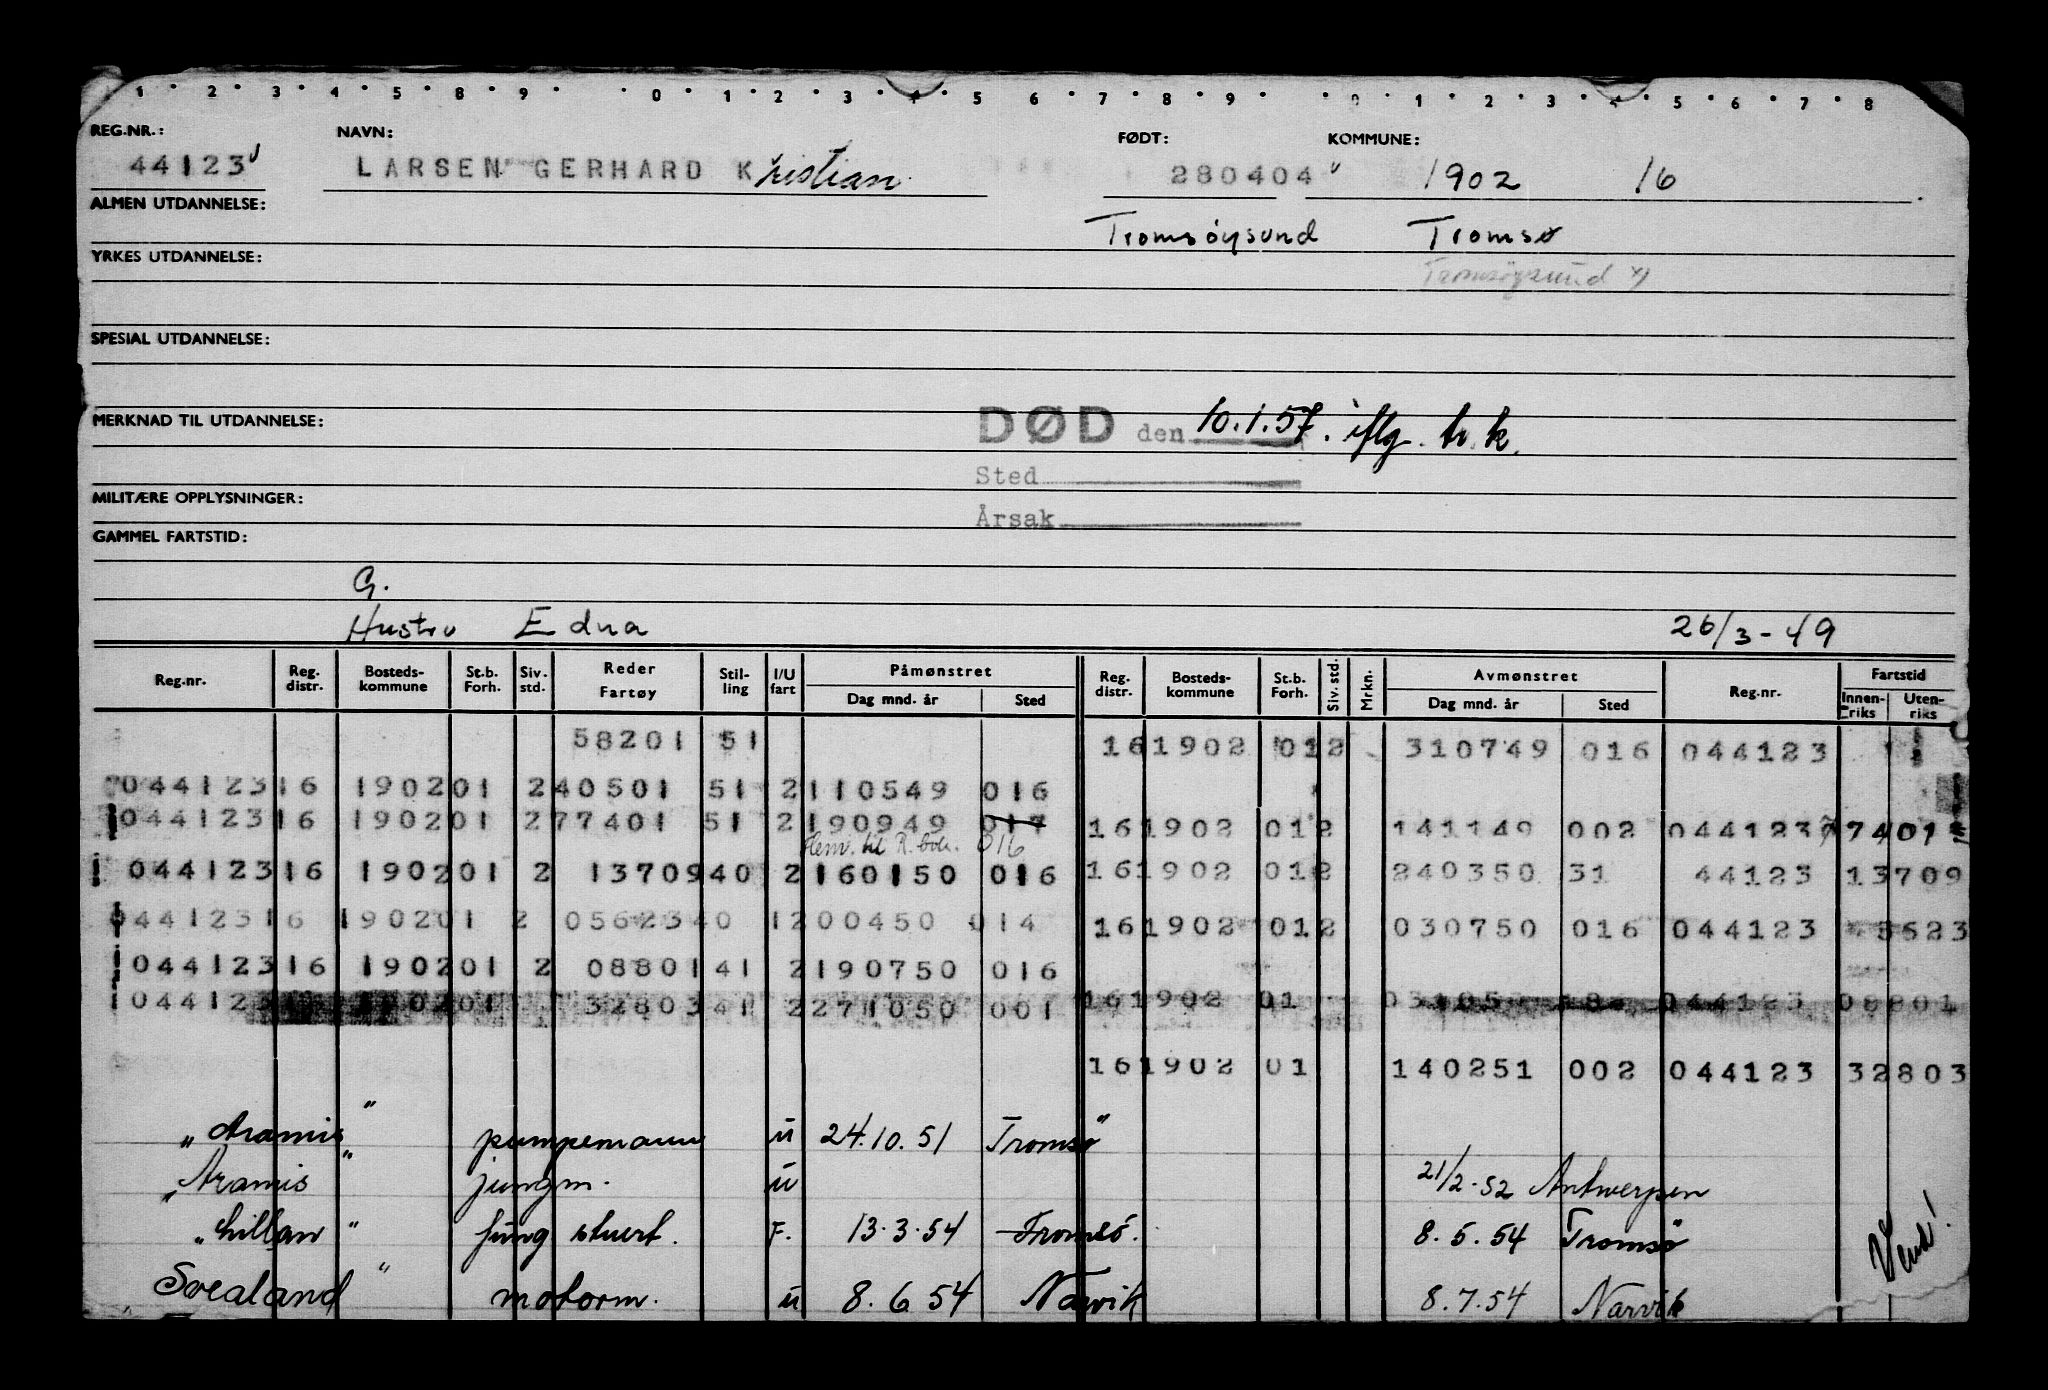 1 2 3 4 5 8 9 0 1 2 3 4 5 6 7 8 9 0 1 2 3 4 5 6 7 8
REG.NR.: NAVN: FØDT: KOMMUNE:
44123 LARSEN GERHARD Kristian 280404 1902 16
ALMEN UTDANNELSE:
Tromsøysund Tromsø
YRKES UTDANNELSE: Tromsøysund
SPESIAL UTDANNELSE:
MERKNAD TIL UTDANNELSE: DØD den 10.1.57. iflg. tr.k.
Sted
MILITÆRE OPPLYSNINGER:
Årsak
GAMMEL FARTSTID:
G.
Hustru Edna 26/3-49
Reg.nr. Reg. distr. Bosteds-kommune St.b. Forh. Siv. std. Reder Fartøy Stil-ling I/U fart Påmønstret Dag mnd. år Sted Reg. distr. Bosteds-kommune St.b. Forh. Siv. std. Mrkn. Avmønstret Dag mnd. år Sted Reg.nr. Fartstid Innen-riks Uten-riks
58201 51 161902 012 310749 016 044123
04412316 190201 240501 51 2110549 016
04412316 190201 277401 51 2190949 017 161902 012 141149 002 044123 7401
Hem. til R. bok. 016
04412316 190201 2 1370940 2160150 016 161902 012 240350 31 44123 13709
04412316 190201 2 0562340 1200450 014 161902 012 030750 016 044123 5623
04412316 190201 2 0880141 2190750 016
044123 190201 3280341 2271050 001 161902 01 044123 08801
161902 01 140251 002 044123 32803
"Aramis" pumpemann u 24.10.51 Tromsø"
"Aramis" jungm. u 21/2-52 Antwerpen
"Lillan" jung stuert. F. 13.3.54 Tromsö. 8.5.54 Tromsø
Svealand" motorm. u 8.6 54 Narvik 8.7.54 Narvik
Vend!